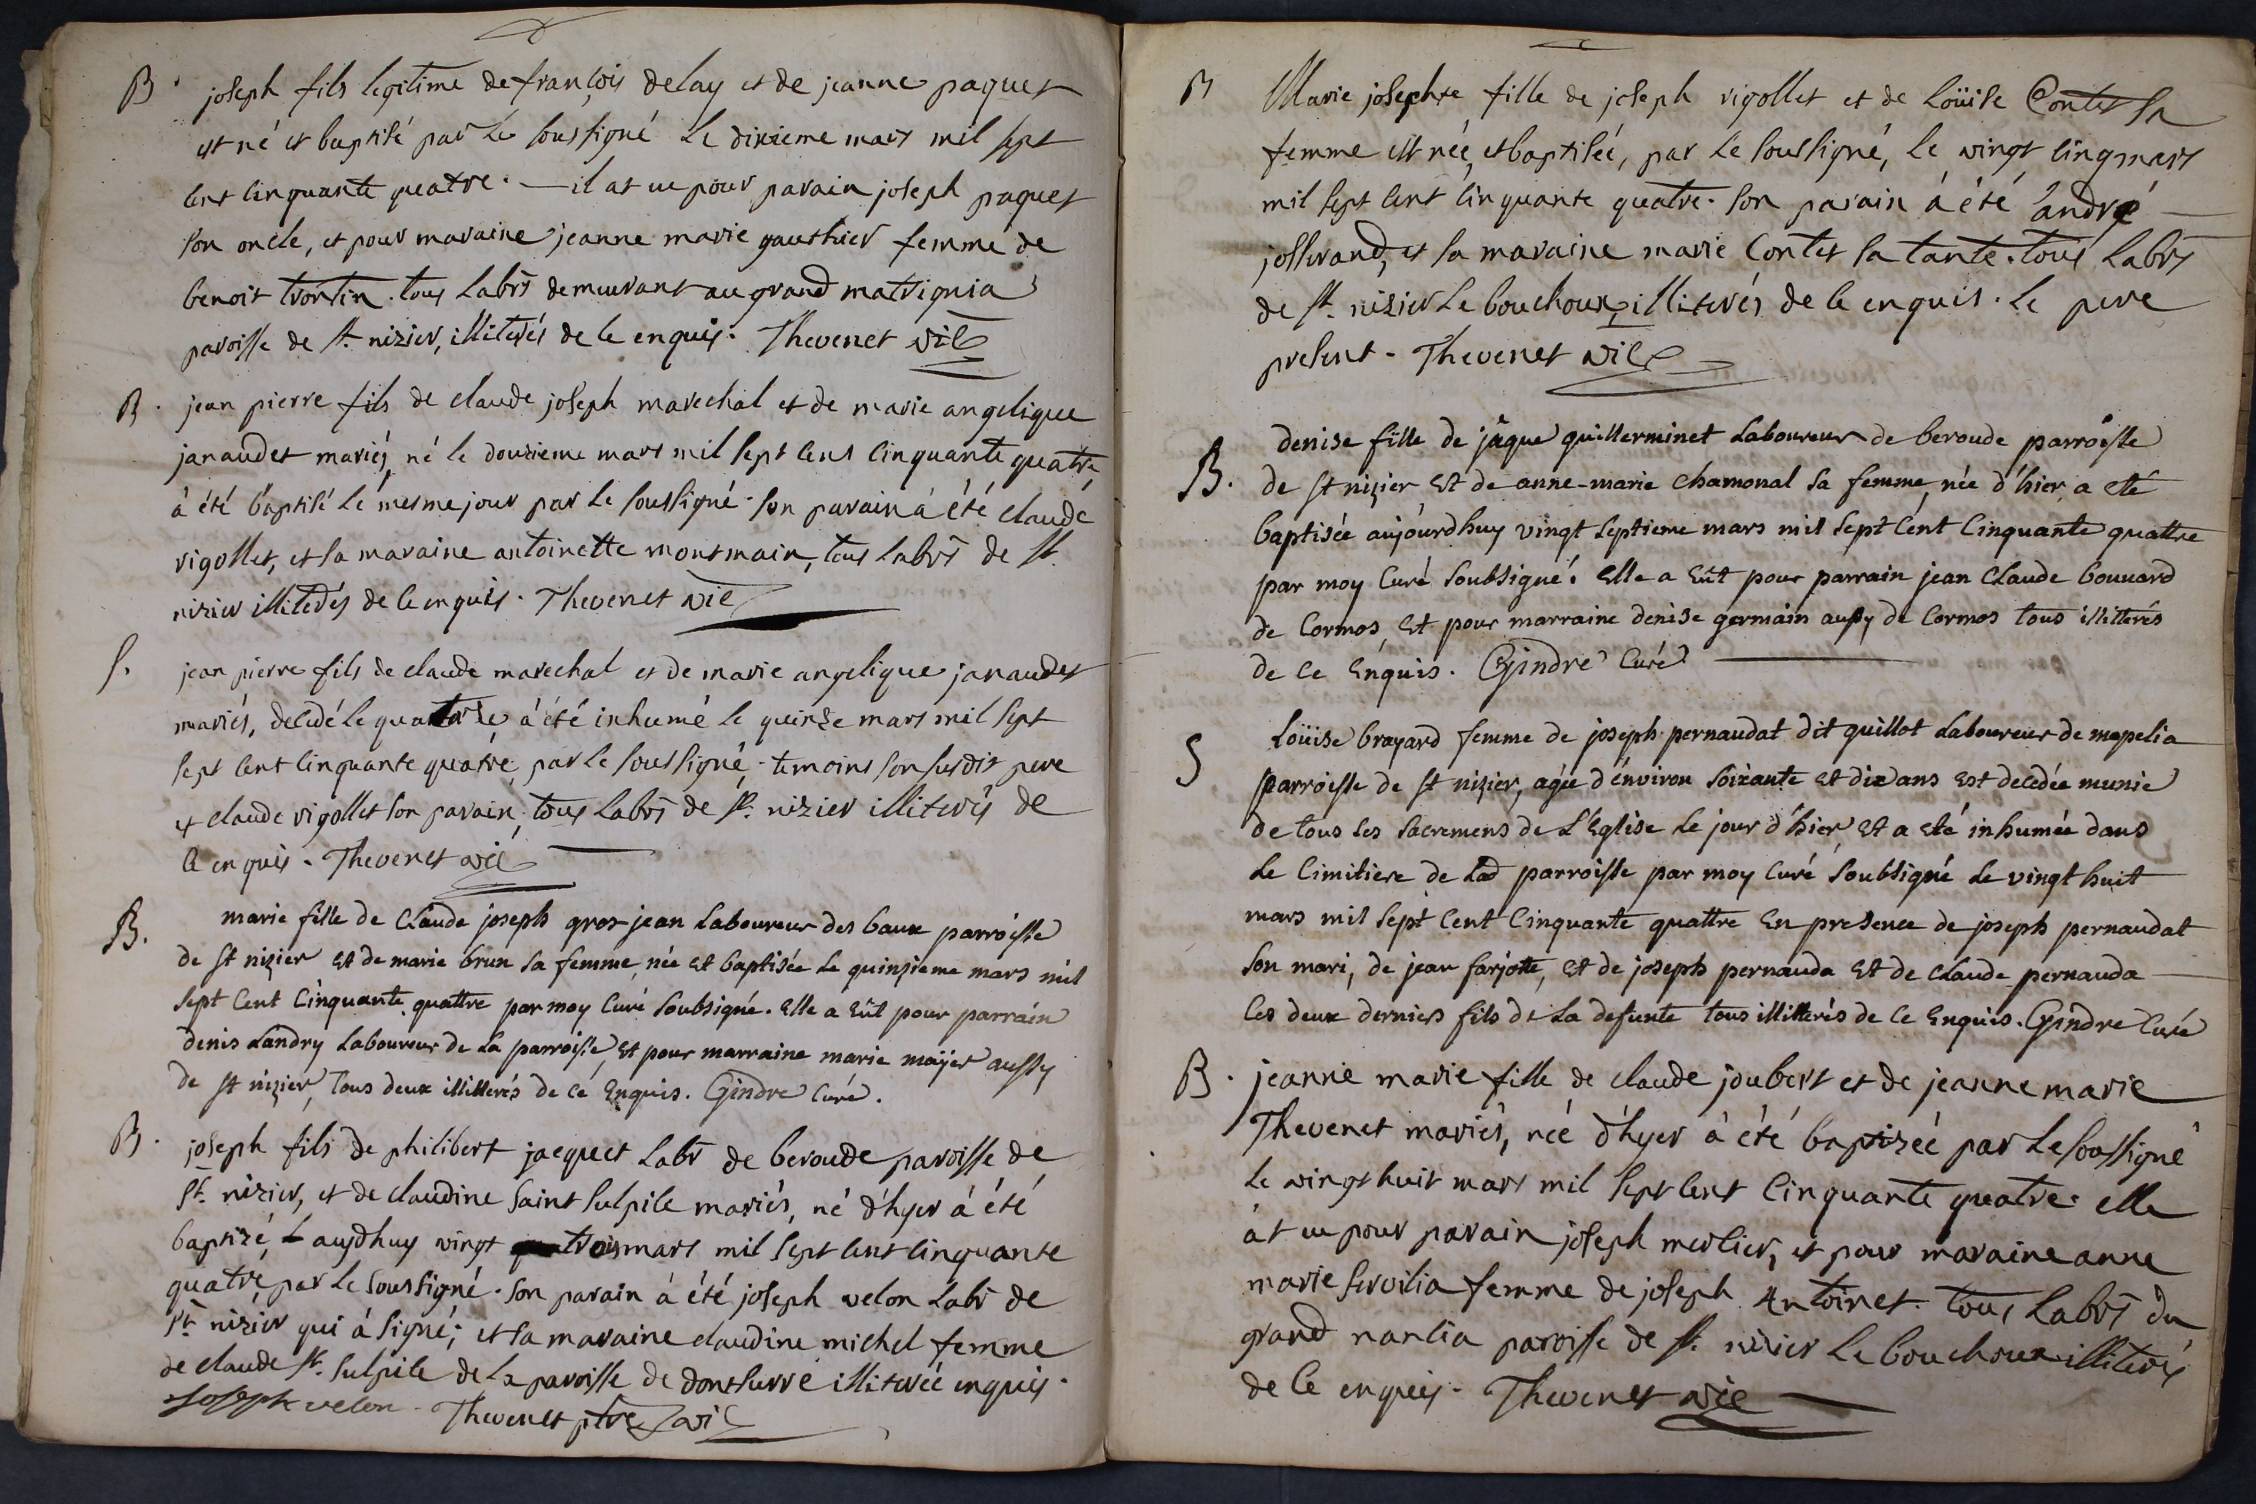 B. joseph fils legitime de françois delay et de jeanne paquet
est né et baptisé par le soussigné le dixieme mars mil sept
cent cinquante quatre. — il at eu pour parain joseph paquet
son oncle, et pour maraine jeanne marie gauthier femme de
benoit trontin. tous Labrs demeurant au grand matrignia
paroisse de st. nizier, illiterés de ce enquis. Thevenet vic
B. jean pierre fils de claude joseph marechal et de marie angelique
janaudet mariés, né le douzieme mars mil sept cens cinquante quatre,
à été baptisé le mesme jour par le soussigné. son parain à été claude
rigollet, et sa maraine antoinette montmain, tous Labrs de st.
nizier illiterés de ce enquis. Thevenet vic
S. jean pierre fils de claude marechal et de marie angelique janaudet
mariés, decedé le quatorze à été inhumé le quinze mars mil sept
sept cent cinquante quatre par le soussigné. temoins son susdit pere
et claude rigollet son parain, tous Labrs de st. nizier illiterés de
ce enquis. Thevenet vic
B. marie fille de Claude joseph gros jean Laboureur des baux parroisse
de st nizier et de marie brun sa femme, née et baptisée le quinzieme mars mil
sept cent cinquante quattre par moy curé soubsigné. elle a eût pour parrain
denis Landry Laboureur de la parroisse, et pour marraine marie maÿet aussy
de st nizier, tous deux illitterés de ce enquis. Gindre curé.
B. joseph fils de philibert jacquet Labr de beroude paroisse de
st. nizier, et de claudine saint sulpice mariés, né d'hyer à été
baptizé, aujdhuy vingt trois mars mil sept cent cinquante
quatre, par le soussigné. son parain à été joseph velon Labr de
st nizier qui à signé; et sa maraine claudine michel femme
de claude st. sulpice de la paroisse de dontsurre illiterée enquis.
joseph velon. Thevenet ptre vic
B Marie josephte fille de joseph rigollet et de Loüise Contet sa
femme est née, et baptisée, par le soussigné, le vingt cinq mars
mil sept cent cinquante quatre. son parain à été andré
josserand, et sa maraine marie Contet sa tante. tous Labrs
de st. nizier le bouchoux, illiterés de ce enquis. le pere
present. Thevenet vic
B. denise fille de jâque guillerminet Laboureur de beroude parroisse
de st nizier et de anne-marie chamonal sa femme, née d'hier a eté
baptisée aujourdhuy vingt septieme mars mil sept cent cinquante quattre
par moy curé soubsigné. elle a eût pour parrain jean Claude bouvard
de Cormos, et pour marraine denise germain aussy de Cormos tous illitterés
de ce enquis. Gindre curé
S Loüise brayard femme de joseph pernaudat dit guillot Laboureur de mepelia
parroisse de st nizier, agée d'environ soixante et dix ans est decedée munie
de tous les sacremens de l'Eglise le jour d'hier, et a eté inhumée dans
le cimitiere de Lad parroisse par moy curé soubsigné le vingt huit
mars mil sept cent cinquante quattre en presence de joseph pernaudat
son mari, de jean farjotte, et de joseph pernauda et de claude pernauda
ces deux derniers fils de la defunte tous illitterés de ce enquis. Gindre curé
B. jeanne marie fille de claude joubert et de jeanne marie
Thevenet mariés, née d'hyer à été baptizeé par le soussigné
le vingt huit mars mil sept cent cinquante quatre. elle
at eu pour parain joseph merlier, et pour maraine anne
marie servilia femme de joseph Antoinet. tous Labrs du
grand nancia paroisse de st. nizier le bouchoux illiterés
de ce enquis. Thevenet vic